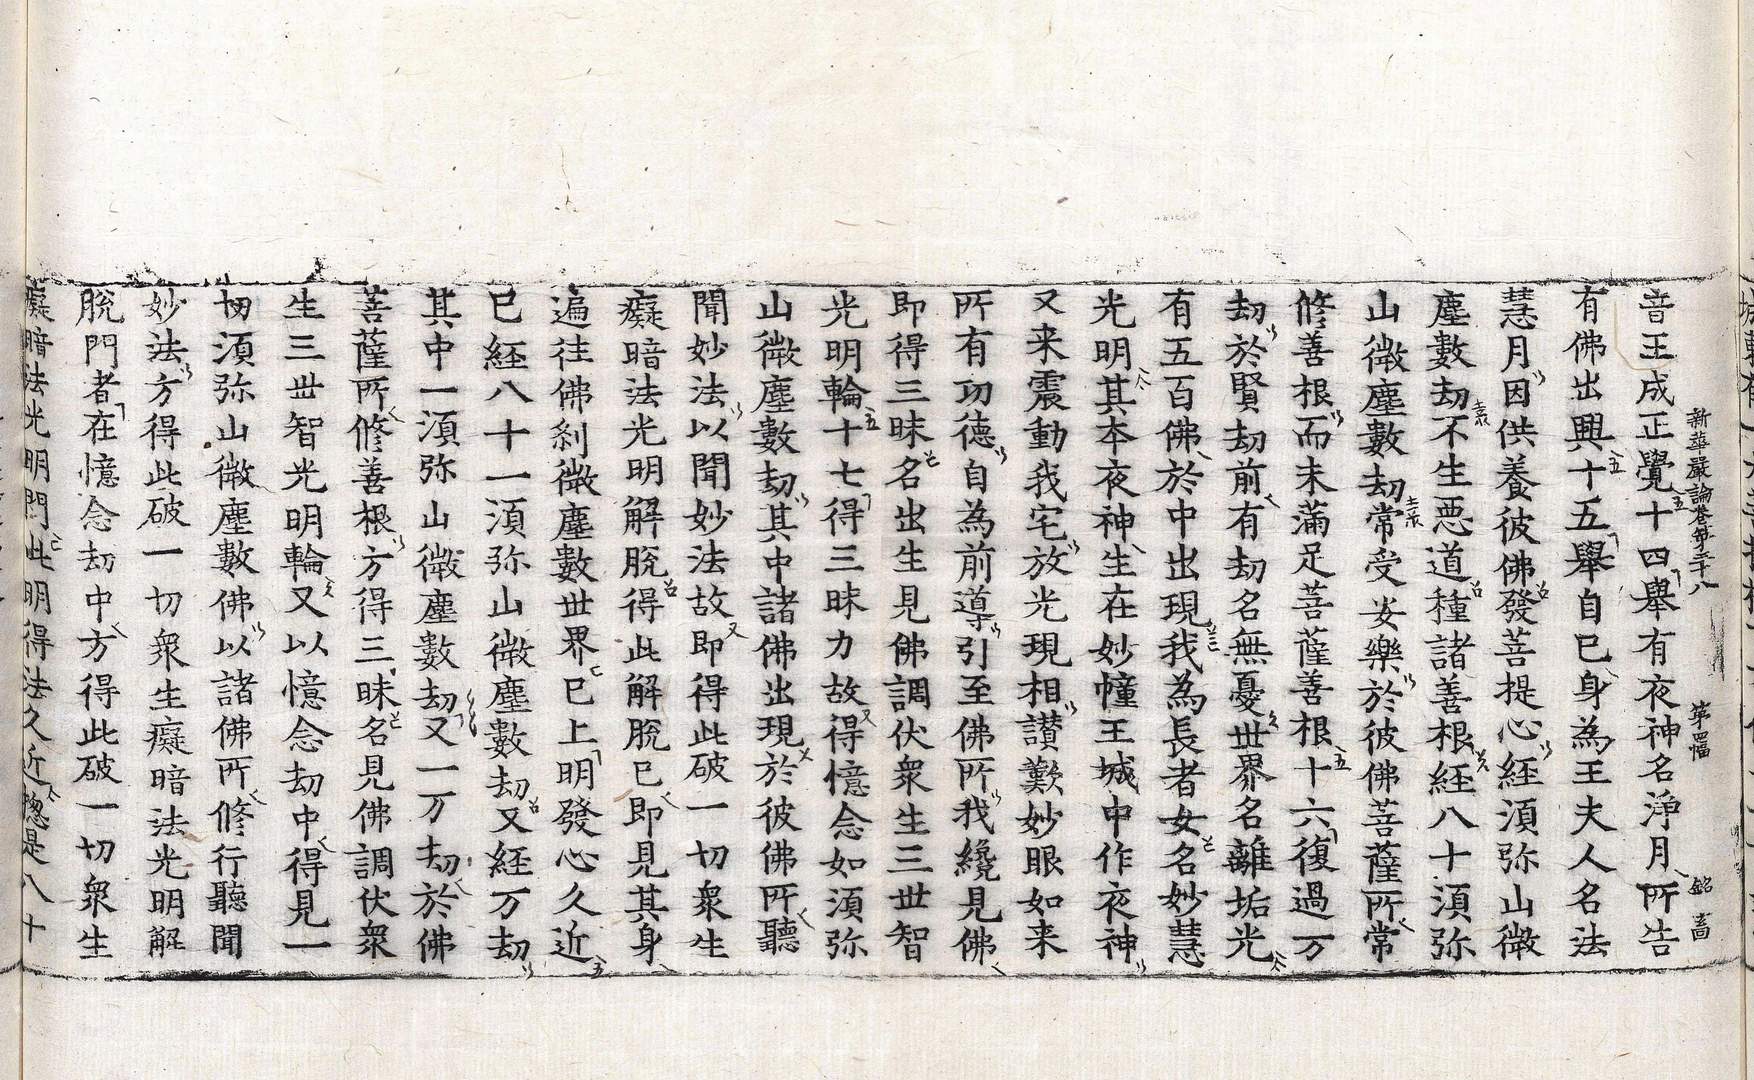 新華嚴論卷第三十八　第四幅　銘 畜
音王成正覺十四舉有夜神名淨月所告
有佛出興十五舉自已身為王夫人名法
慧月因供養彼佛發菩提心經湏弥山微
塵數劫不生惡道種諸善根経八十湏弥
山微塵數劫常受安樂於彼佛菩薩所常
修善根而未滿足菩薩善根十六復過万
劫於賢劫前有劫名無憂世界名離垢光
有五百佛於中出現我為長者女名妙慧
光明其夲夜神生在妙幢王城中作夜神
又来震動我宅放光現相讃歎妙眼如来
所有功德自為前導引至佛所我纔見佛
即得三昧名出生見佛調伏衆生三世智
光明輪十七得三昧力故得憶念如湏弥
山微塵數劫其中諸佛出現於彼佛所聽
聞妙法以聞妙法故即得此破一切衆生
癡暗法光明解脫得此解脫已即見其身
遍往佛刹微塵數世界已上明發心久近
已經八十一湏弥山微塵數劫又経万劫
其中一湏弥山微塵數劫又一万劫於佛
菩薩所修善根方得三昧名見佛調伏衆
生三世智光明輪又以憶念劫中得見一
切湏弥山微塵數佛以諸佛所修行聽聞
妙法方得此破一切衆生癡暗法光明解
脫門者在憶念劫中方得此破一切衆生
癡暗法光明門此明得法久近揔是八十